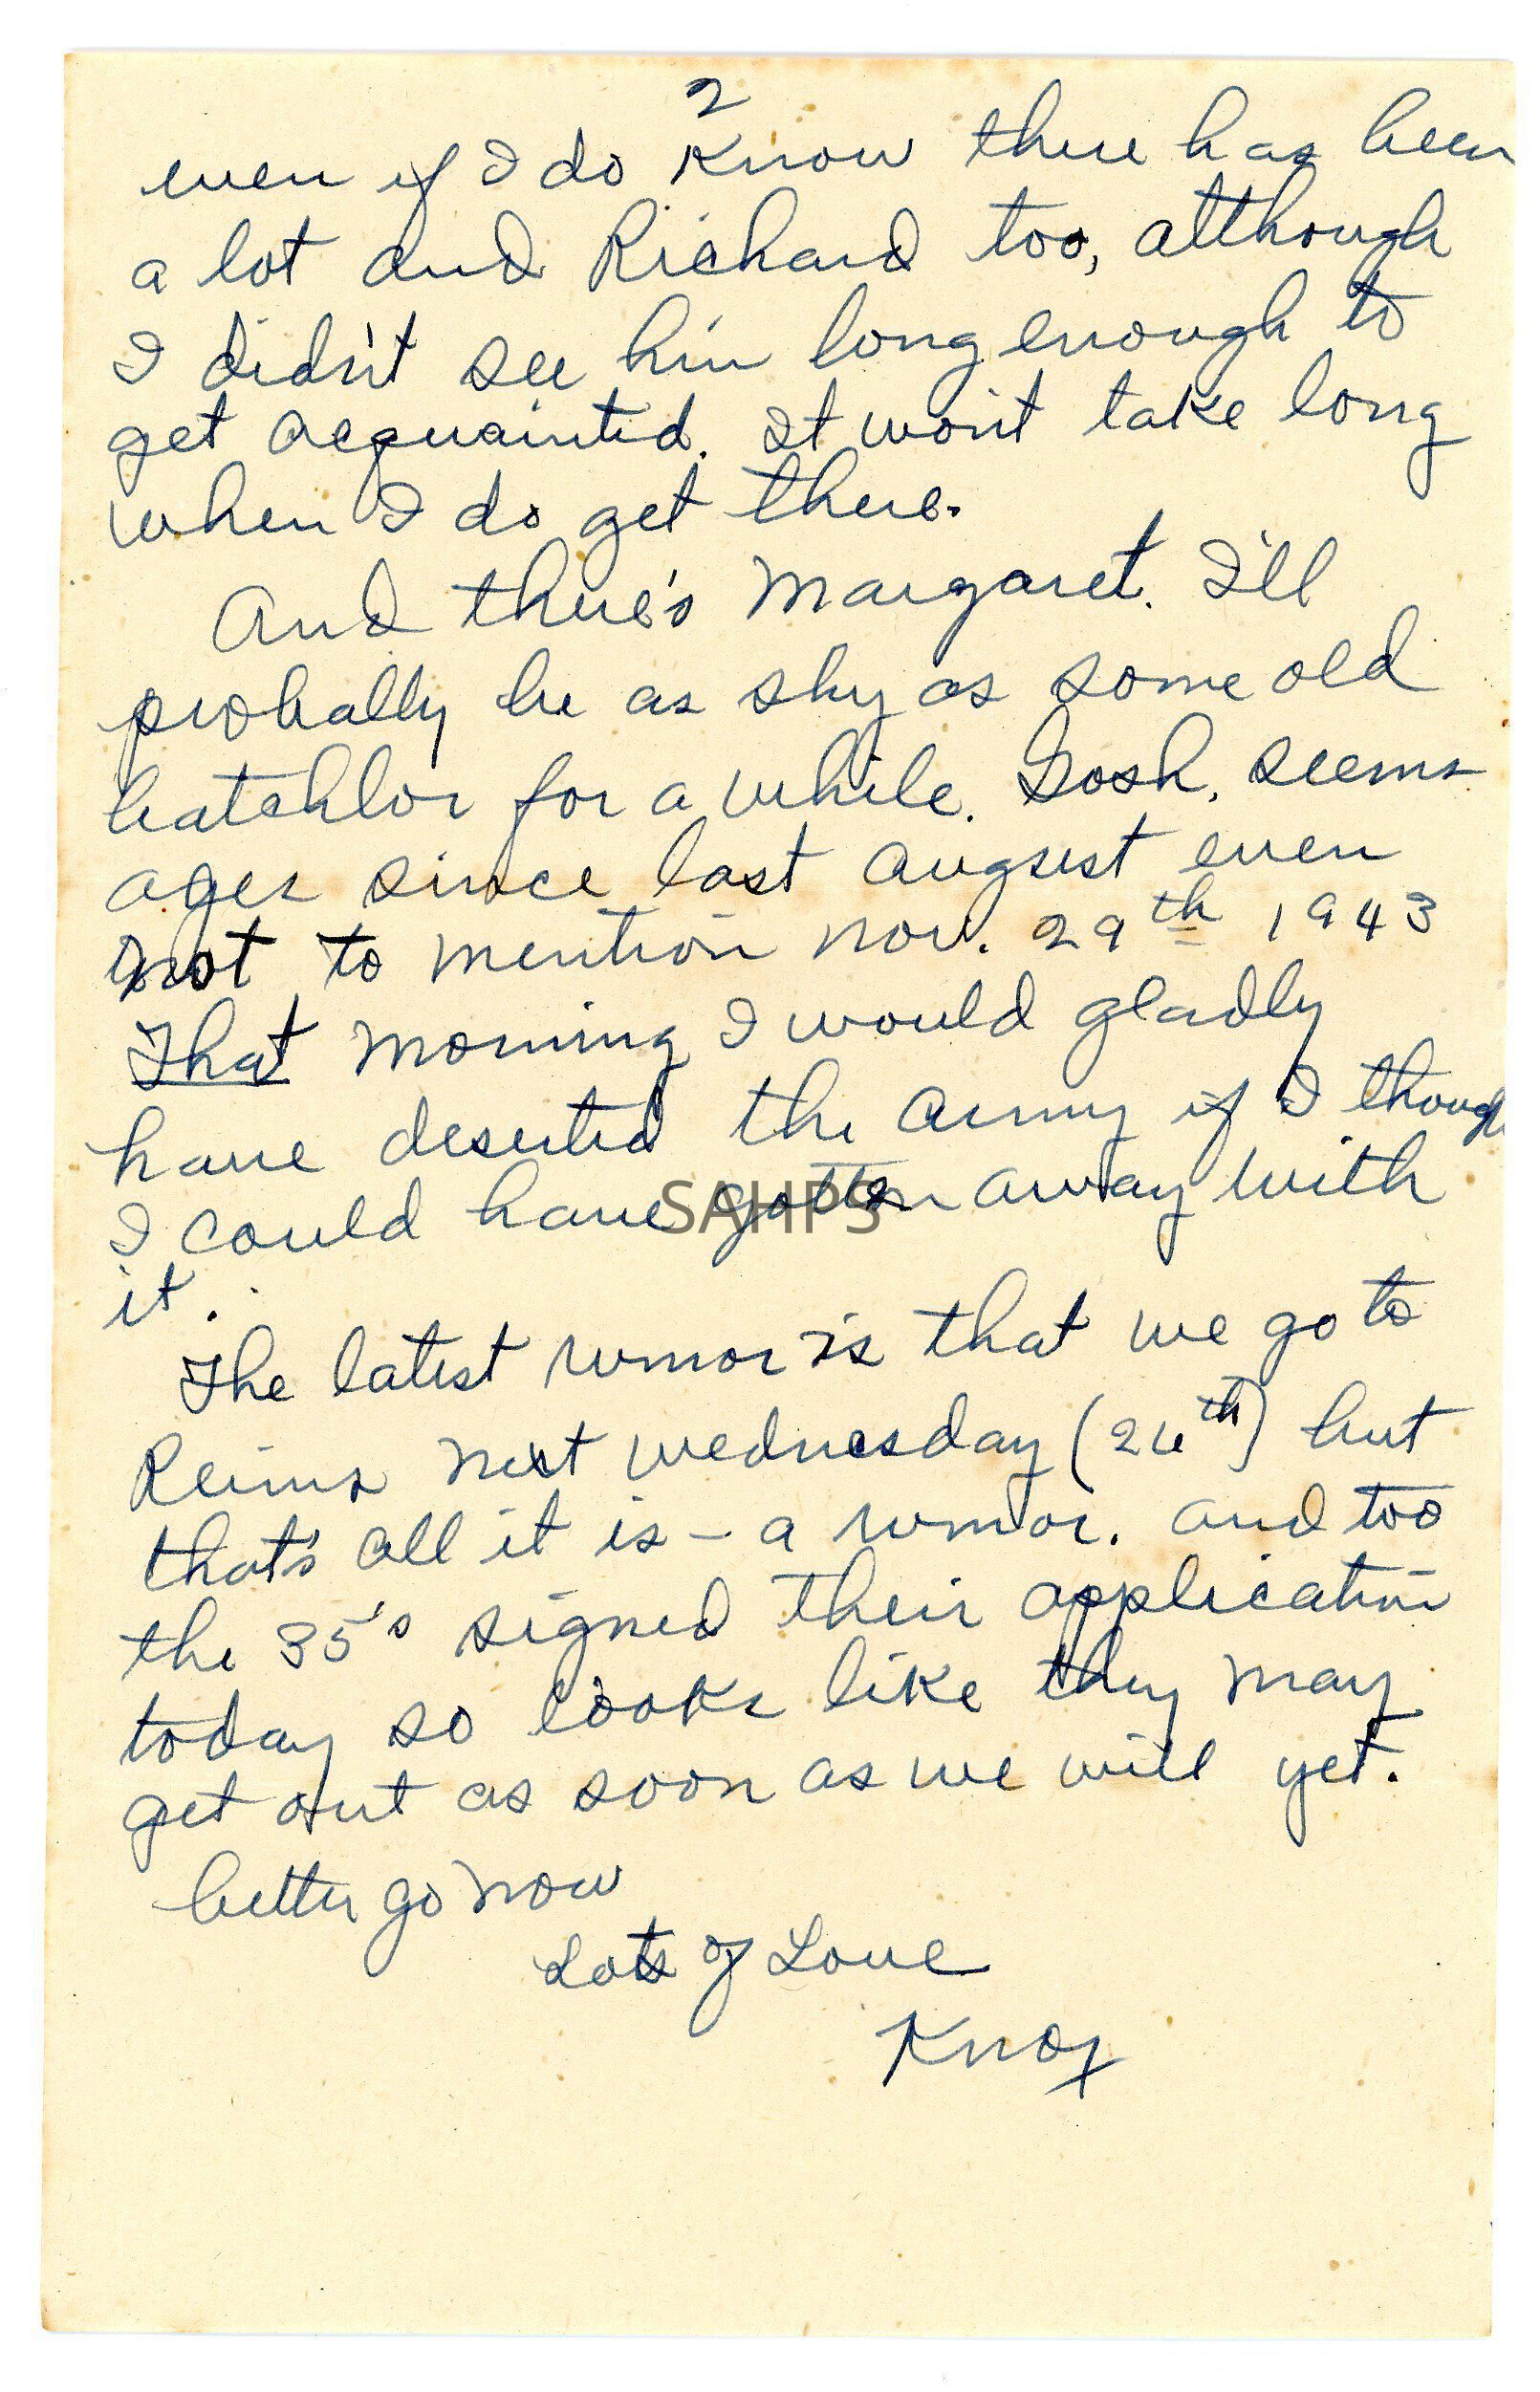 2
even if I do know there has been
a lot and Richard too, although
I didn't see him long enough to
get acquainted. It won't take long
when I do get there.
And there's Margaret. I'll
probally be as shy as some old
batchlor for a while. Gosh, seems
ages since last August even
not to mention Nov. 29th 1943
That morning I would gladly
have deserted the army if I though
I could have gotten away with
it.
The latest rumor is that we go to
Reims next Wednesday (26th) but
that's all it is - a rumor. And too
the 35's signed their application
today so looks like they may
get out as soon as we will yet.
better go now
Lots of Love
Knox
SAHPS